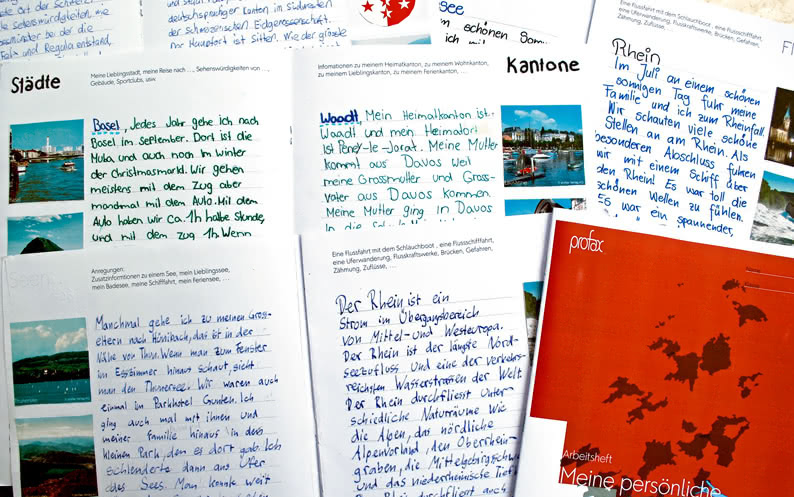 deutschsprachiger Kanton im Südwesten
der Schweizerischen Eidgenossenschaft.
Der Hauptort ist Sitten. Wie der grösste
see
schönen Som
ich mit
Städte
Meine Lieblingsstadt, meine Reise nach ..., Sehenswürdigkeiten von ...,
Gebäude, Sportclubs, usw.
Basel, Jedes Jahr gehe ich nach
Basel im September. Dort ist die
Muba und auch noch im Winter
der Christmasmarkt. Wir gehen
meistens mit dem Zug aber
manchmal mit dem Auto. Mit dem
Auto haben wir ca. 1h halbe Stunde,
und mit dem Zug 1h. Wenn
Kantone
Infomationen zu meinem Heimatkanton, zu meinem Wohnkanton,
zu meinem Lieblingskanton, zu meinem Ferienkanton, ...
Waadt, Mein Heimatkanton ist
Waadt und mein Heimatort
ist Peney-le-Jorat. Meine Mutter
kommt aus Davos weil
meine Grossmutter und Gross-
vater aus Davos kommen.
Meine Mutter ging in Davos
in die
Eine Flussfahrt mit dem Schlauchboot, eine Flussschifffahrt,
eine Uferwanderung, Flusskraftwerke, Brücken, Gefahren,
Zähmung, Zuflüsse, ...
Fl
Rhein
Im Juli an einem schönen
sonnigen Tag fuhr meine
Familie und ich zum Rheinfall.
Wir schauten viele schöne
Stellen an am Rhein. Als
besonderen Abschluss fuhren
wir mit einem Schiff über
den Rhein! Es war toll die
schönen Wellen zu fühlen.
Es war ein spannender,
Anregungen:
Zusatzinformtionen zu einem See, mein Lieblingssee,
mein Badesee, meine Schifffahrt, mein Feriensee, ...
Manchmal gehe ich zu meinen Gross-
eltern nach Hünibach, das ist in der
Nähe von Thun. Wenn man zum Fenster
im Esszimmer hinaus schaut, sieht
man den Thunersee. Wir waren auch
einmal im Parkhotel Gunten. Ich
ging auch mal mit ihnen und
meiner Familie hinaus in den
kleinen Park, den es dort gab. Ich
schlenderte dann ans Ufer
des Sees. Man konnte weit
Eine Flussfahrt mit dem Schlauchboot, eine Flussschifffahrt,
eine Uferwanderung, Flusskraftwerke, Brücken, Gefahren,
Zähmung, Zuflüsse, ...
Der Rhein ist ein
Strom im Übergangsbereich
von Mittel- und Westeuropa.
Der Rhein ist der längste Nord-
seezufluss und eine der verkehrs-
reichsten Wasserstrassen der Welt.
Der Rhein durchfliesst unter-
schiedliche Naturräume wie
die Alpen, das nördliche
Alpenvorland, den Oberrhein-
graben, die Mittelgebirgschw
und das niederrheinische Tief
Der Rhein durchfliesst auch
profax
Arbeitsheft
Meine persönliche